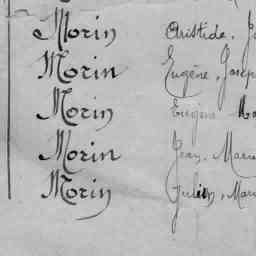 Morin Aristide, J
Morin Eugène, Josep
Morin Eugène Ma
Morin Jean, Marie
Morin Julien, Mari